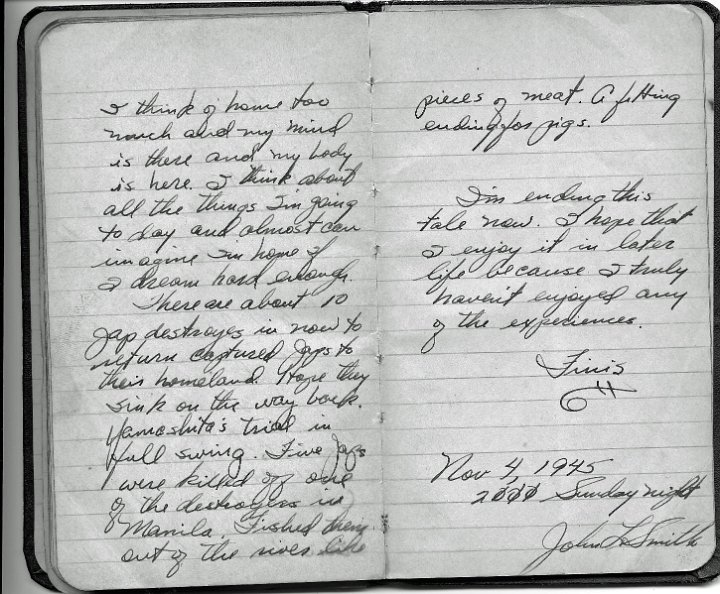 I think of home too
much and my mind
is there and my body
is here. I think about
all the things I'm going
to day and almost can
imagine I'm home if
I dream hard enough.
There are about 10
Jap destroyes in now to
return captured Japs to
their homeland. Hope they
sink on the way back.
Yamashita's trial in
full swing. Five Japs
were killed off one
of the destroyers in
Manila. Fished them
out of the river like
pieces of meat. A fitting
ending for pigs.
I'm ending this
tale now. I hope that
I enjoy it in later
life because I truly
haven't enjoyed any
of the experiences.
Finis
Nov 4, 1945
2000 Sunday night
John L Smith